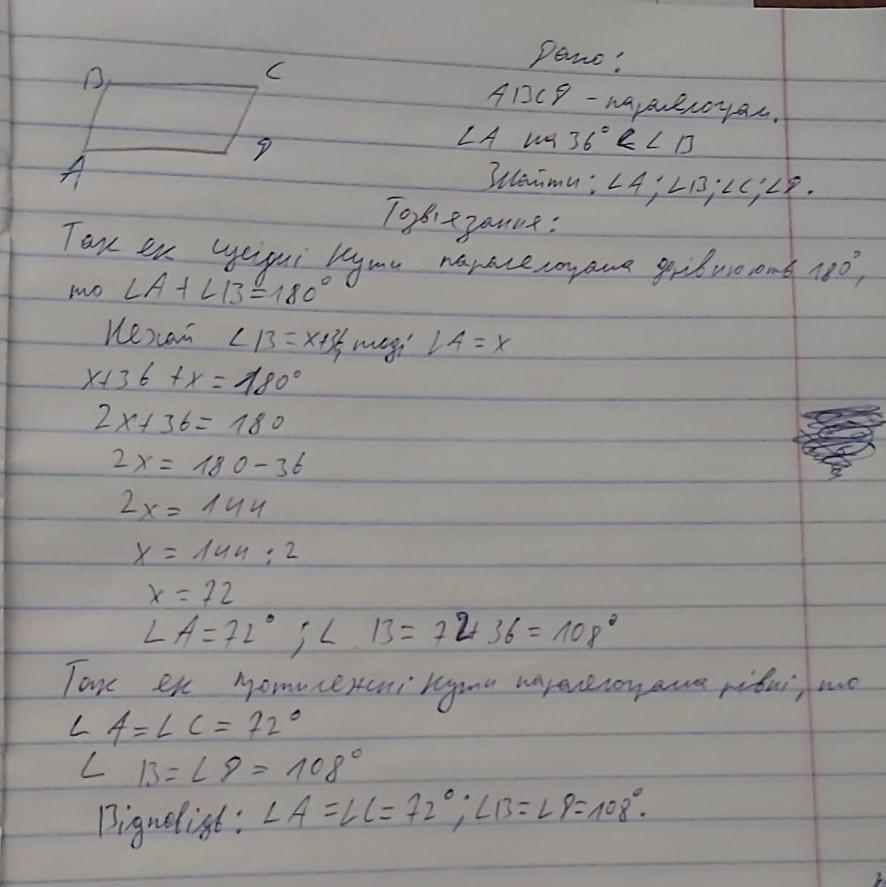 B
C
A
D
Дано:
ABCD - паралелограм.
∠A на 36° < ∠B
Знайти: ∠A; ∠B; ∠C; ∠D.
Розв'язання:
Так як сусідні кути паралелограма дорівнюють 180°,
то ∠A + ∠B = 180°
Нехай ∠B = x+36, тоді ∠A = x
x+36 + x = 180°
2x + 36 = 180
2x = 180 - 36
2x = 144
x = 144 : 2
x = 72
∠A = 72° ; ∠ B = 72 + 36 = 108°
Так як протилежні кути паралелограма рівні, то
∠ A = ∠ C = 72°
∠ B = ∠ D = 108°
Відповідь: ∠A = ∠C = 72°; ∠B = ∠D = 108°.